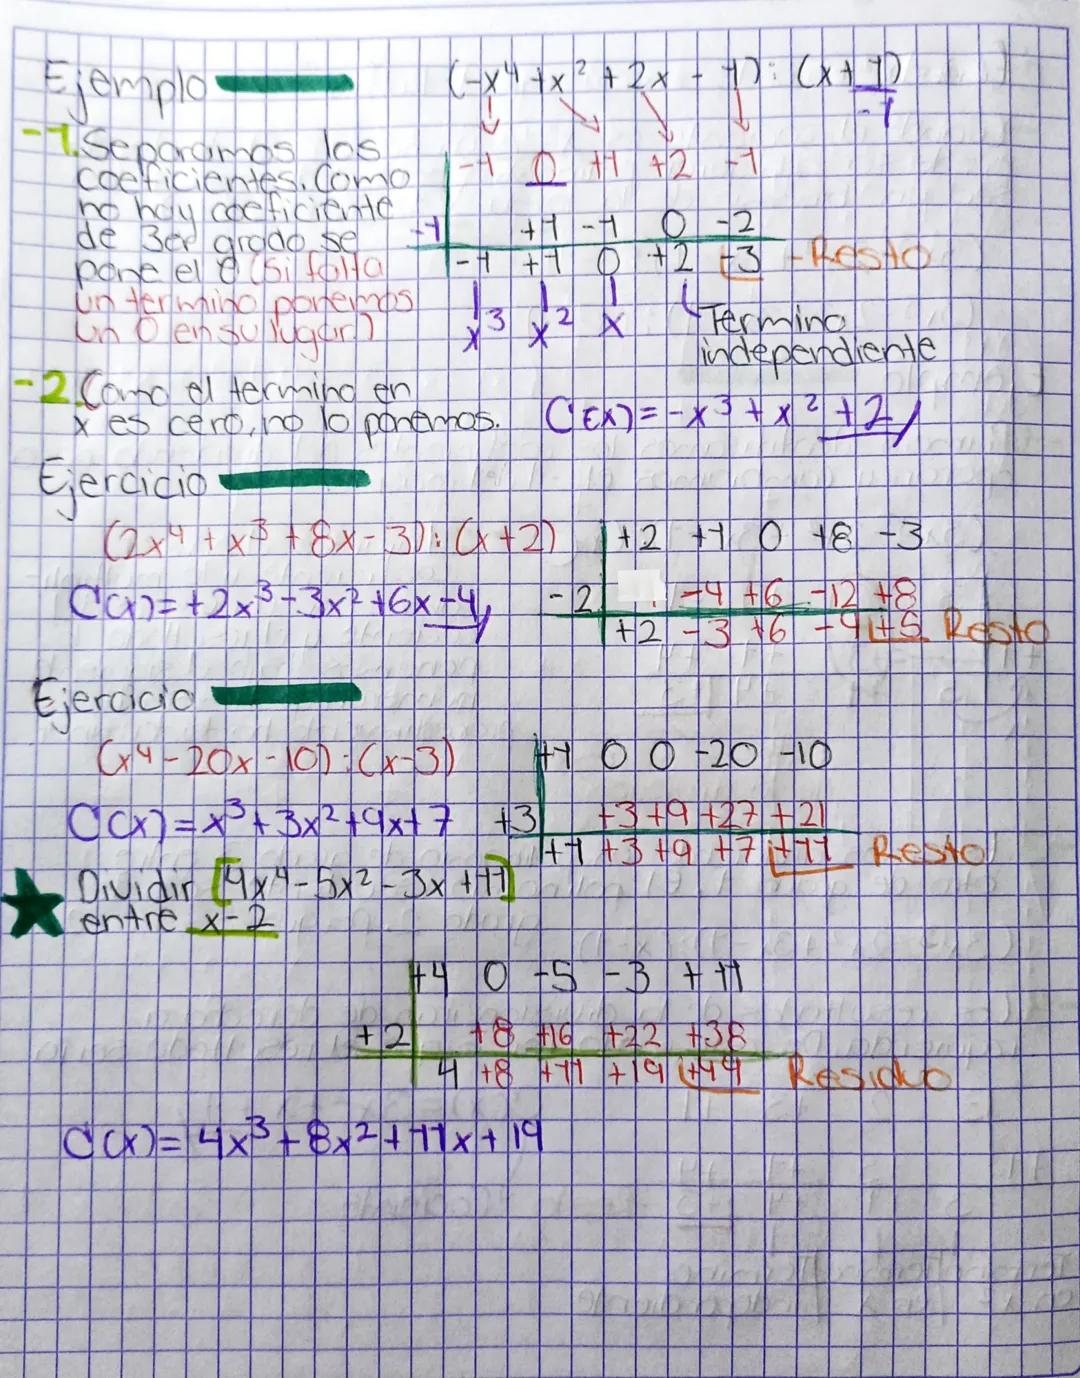 Ejemplo (-x⁴+x²+2x-1):(x+1)
-1
-1. Separamos los
coeficientes. Como
no hay coeficiente
de 3er grado se
pone el 0 (si falta
un termino ponemos
un 0 en su lugar.)
-1 0 +1 +2 -1
-1 +1 -1 0 -2
-1 +1 0 +2 -3 - Resto
x³ x² x Termino
independiente
-2. Como el termino en
x es cero, no lo ponemos. C(x)=-x³+x²+2
Ejercicio
(2x⁴+x³+8x-3):(x+2) +2 +1 0 +8 -3
C(x)=+2x³-3x²+6x-4 -2 -4 +6 -12 +8
+2 -3 +6 -4 +5 Resto
Ejercicio
(x⁴-20x-10):(x-3) +1 0 0 -20 -10
C(x)=x³+3x²+9x+7 +3 +3 +9 +27 +21
+1 +3 +9 +7 +11 Resto
Dividir [4x⁴-5x²-3x+11]
entre x-2
+4 0 -5 -3 +11
+2 +8 +16 +22 +38
4 +8 +11 +19 +49 Residuo
C(x)=4x³+8x²+11x+19